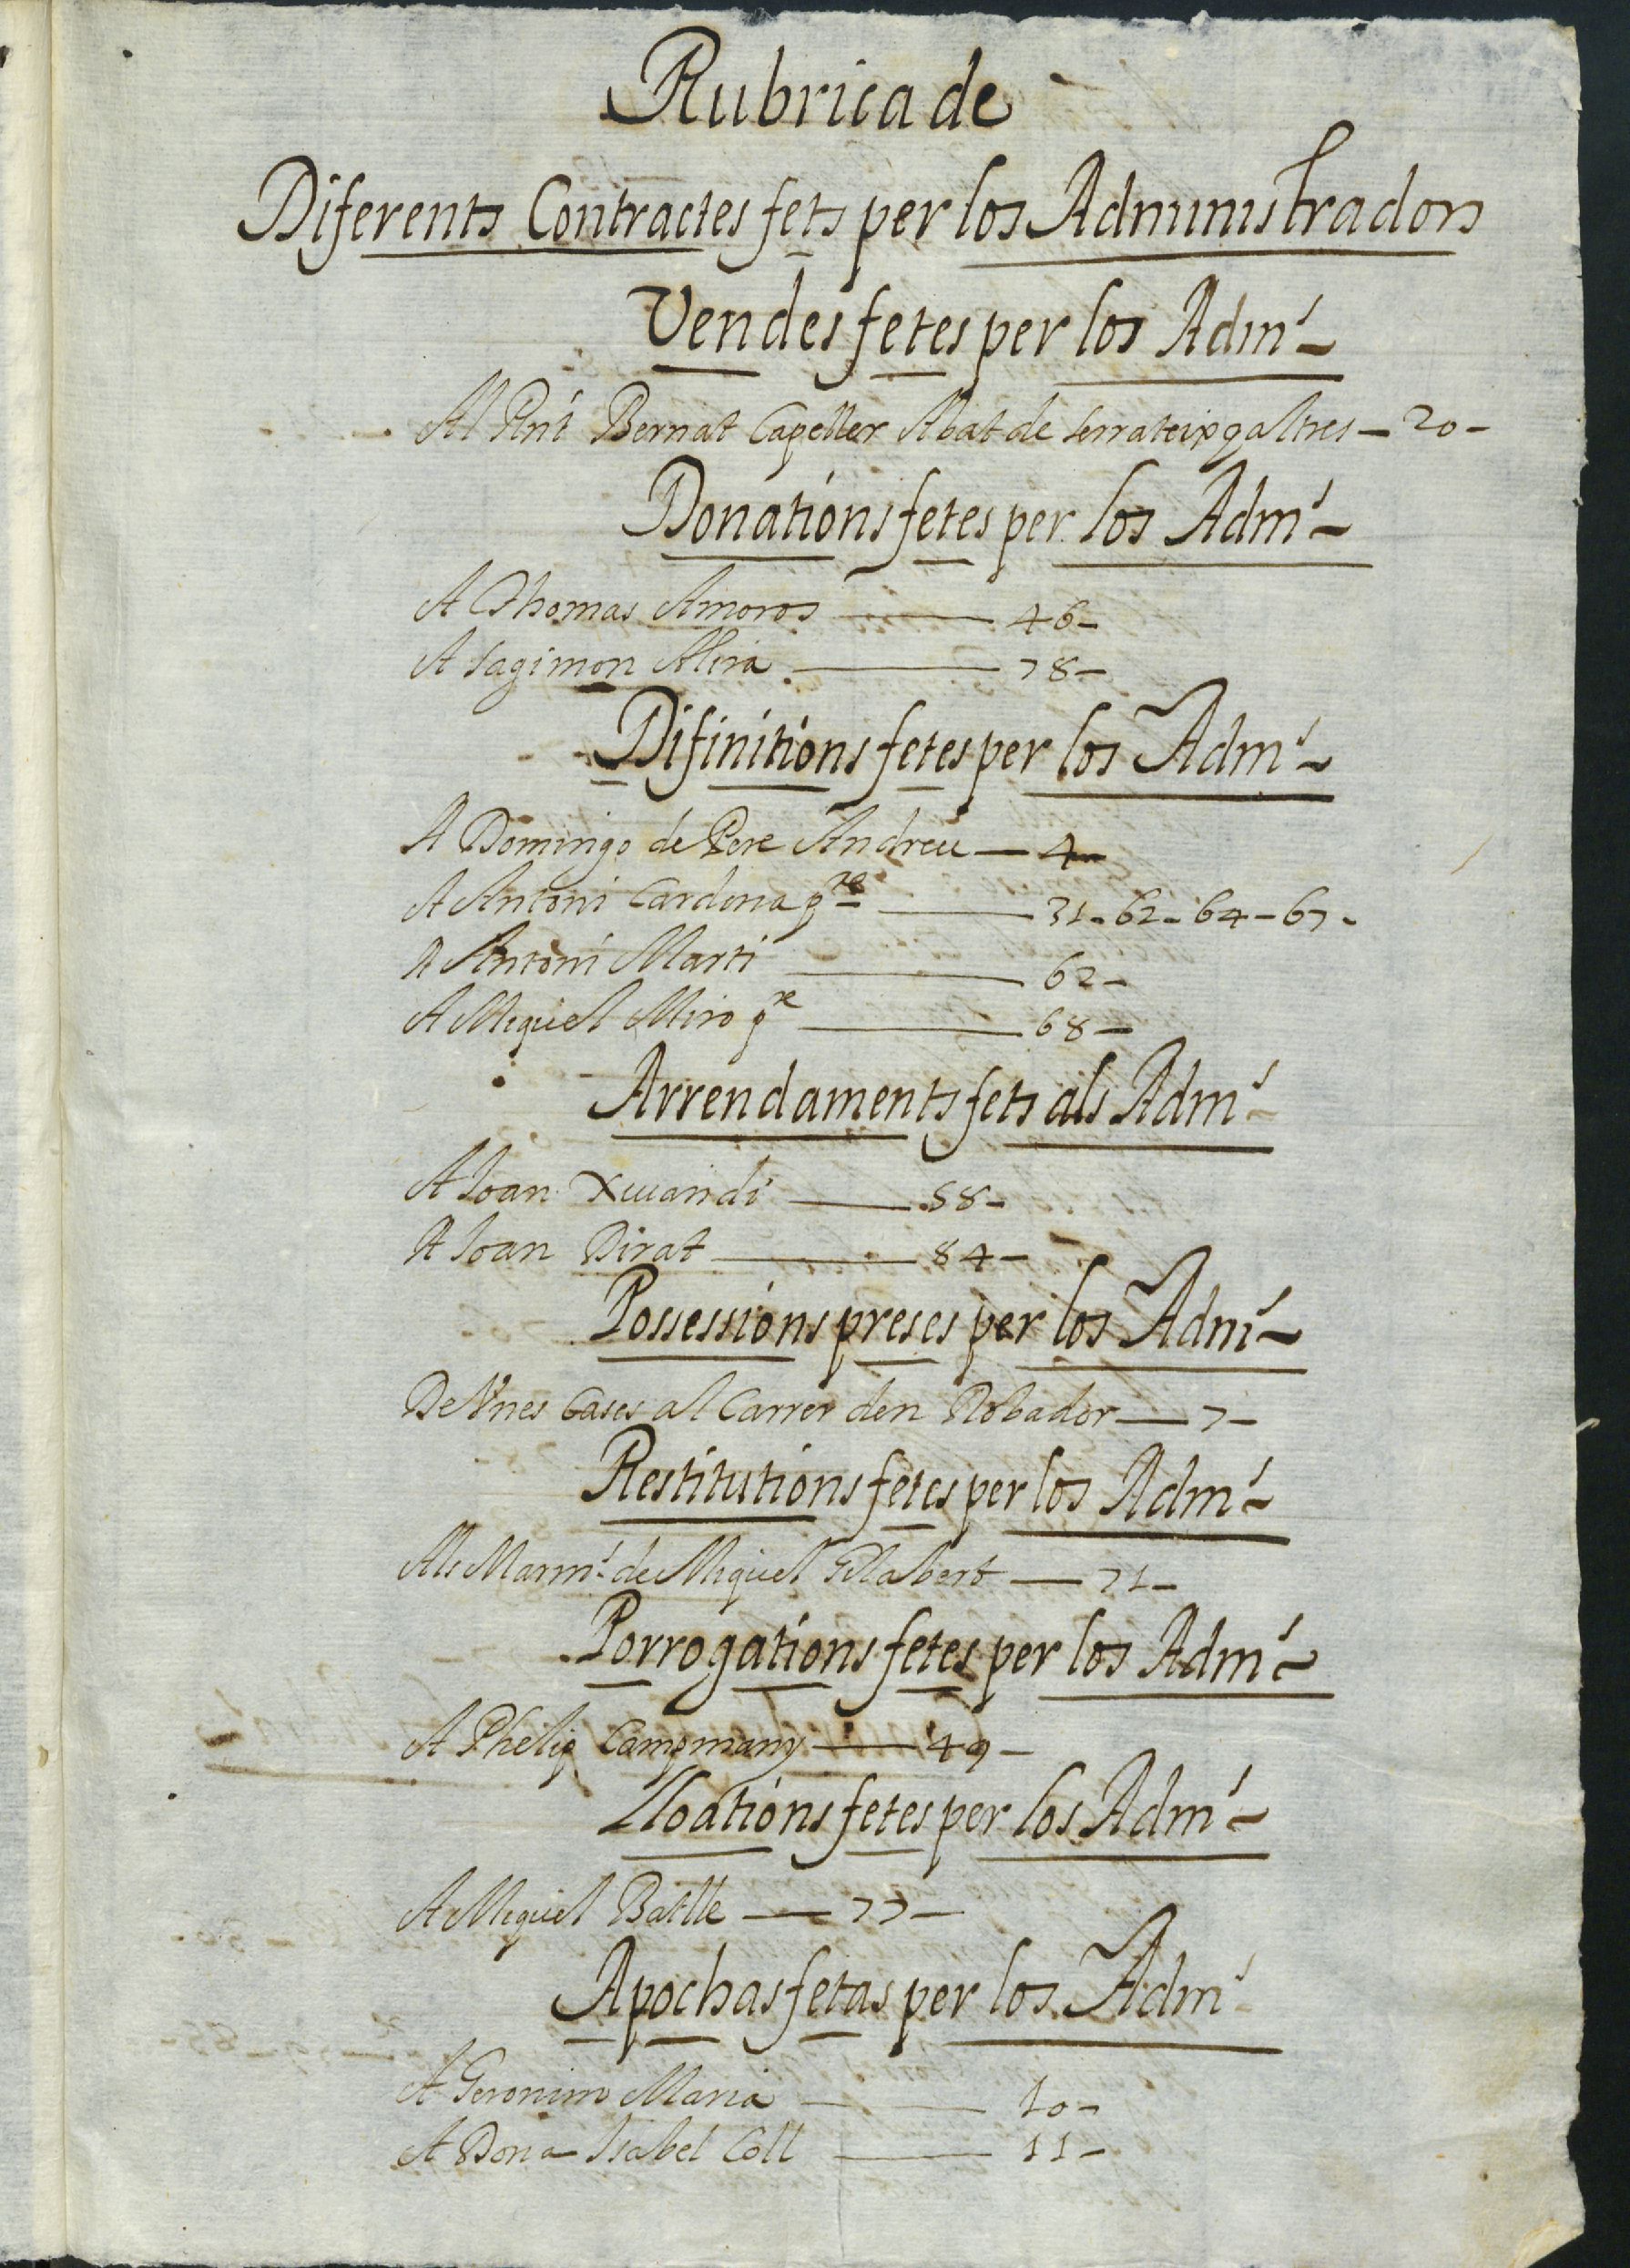 Rubrica de
Diferents Contractes fets per los Administradors
Vendes fetes per los Adm.
Al Bernat Capeller Abat de Serrateix y altres — 20 —
Donations fetes per los Adm.
A Thomas Amoros — 46 —
A Sagimon Mira — 78 —
Difinitions fetes per los Adm.
A Domingo de Pere Andreu — 4 —
A Antoni Cardona pre — 31 - 62 - 64 - 67 -
A Antoni Marti — 62 —
A Miquel Miro pre — 68 —
Arrendaments fets als Adm.
A Joan — 58 —
A Joan Dirat — 84 —
Possessions preses per los Adm.
De Vnes Cases al Carrer den Robador — 7 —
Restitutions fetes per los Adm.
Als Marm. de Miquel Gilabert — 71 —
Porrogations fetes per los Adm.
A Phelip Campmany — 49 —
Lloations fetes per los Adm.
A Miquel Batlle — 77 —
Apochas fetas per los Adm.
A Geronim Maria — 10 —
A Dona Isabel Coll — 11 —